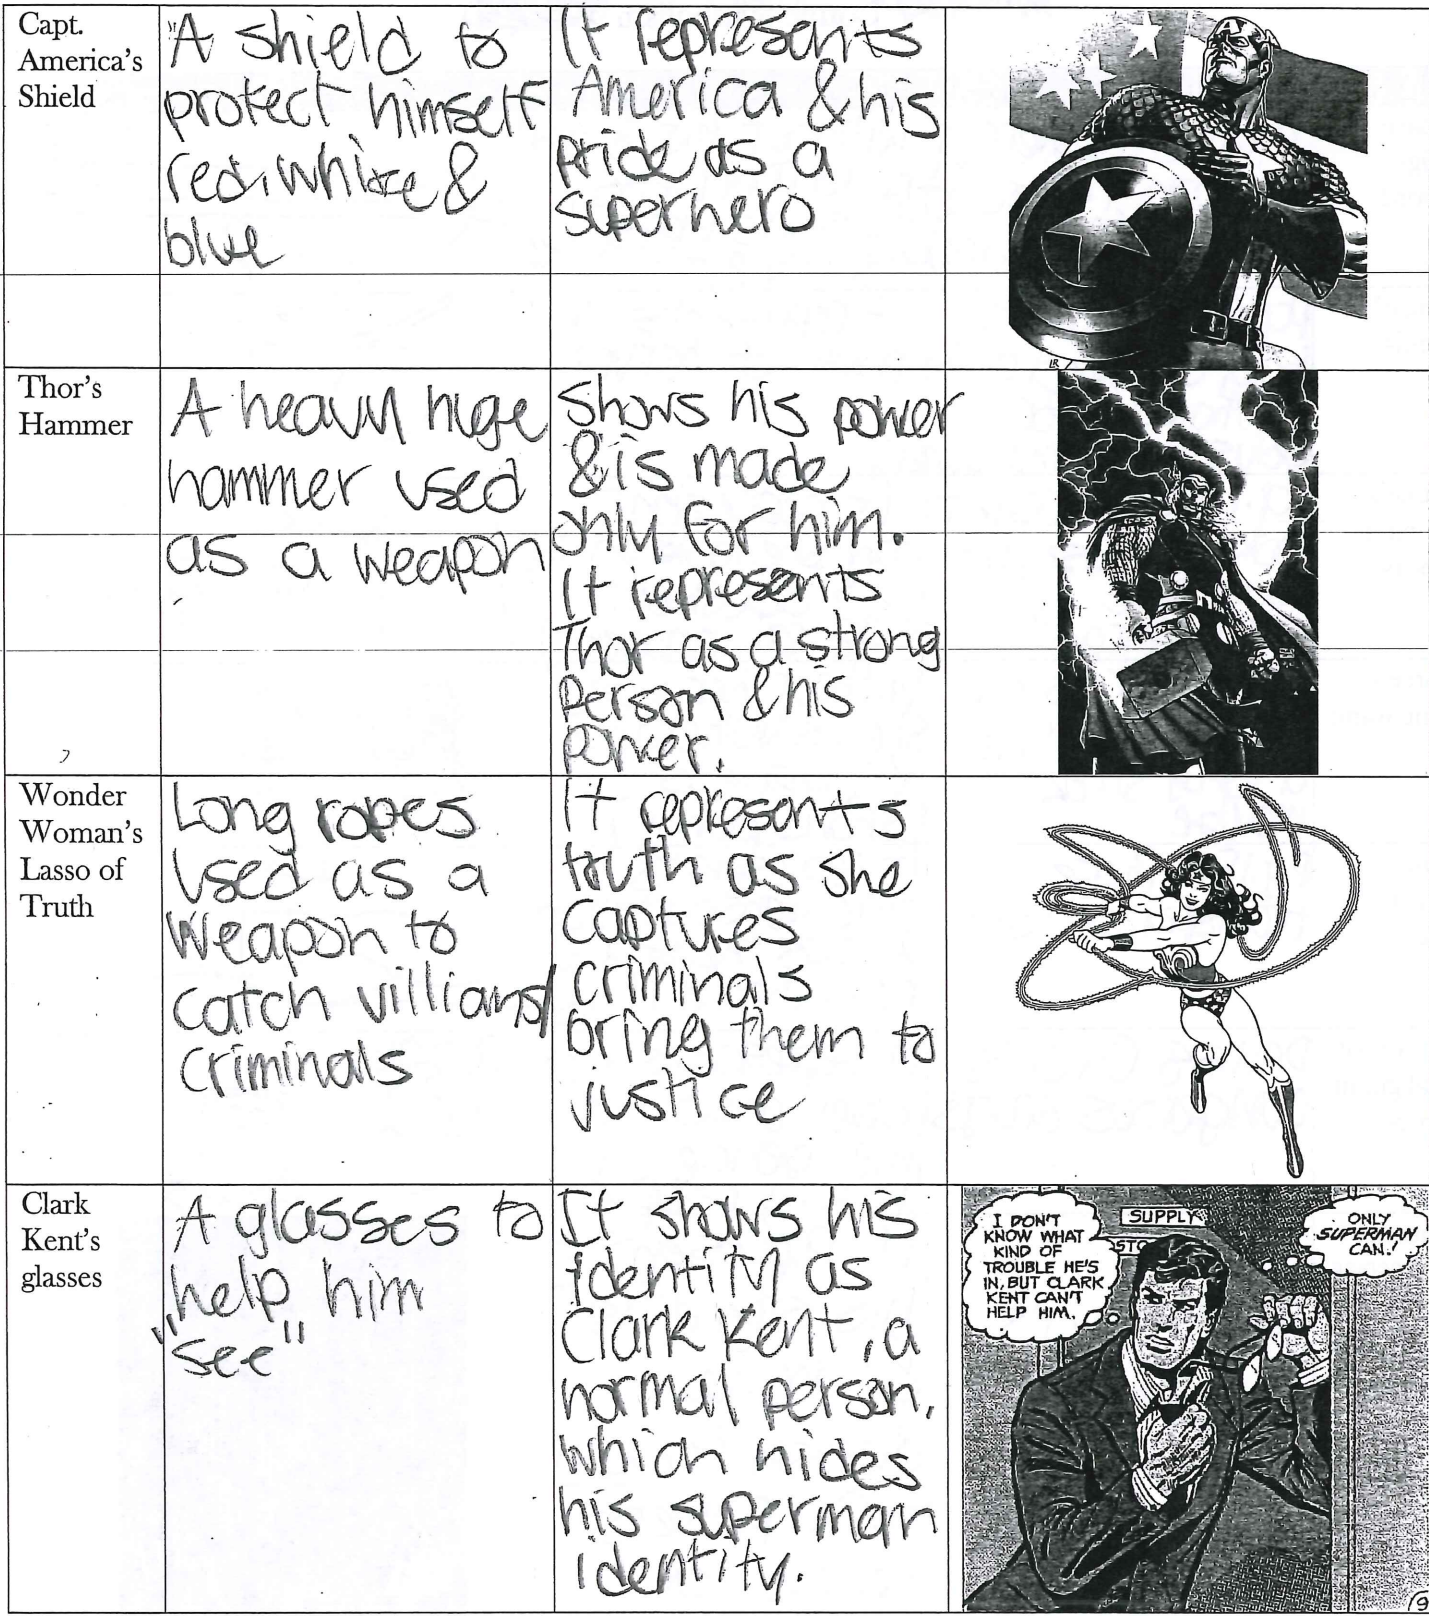 Capt.
America's
Shield
"A shield to
protect himself
red, white &
blue
It represents
America & his
pride as a
superhero
LR
Thor's
Hammer
A heavy huge
hammer used
as a weapon
Shows his power
& is made
only for him.
It represents
Thor as a strong
person & his
power.
Wonder
Woman's
Lasso of
Truth
Long ropes
used as a
weapon to
catch villians/
criminals
It represents
truth as she
captures
criminals
bring them to
justice
Clark
Kent's
glasses
A glasses to
help him
"see"
It shows his
identity as
Clark Kent, a
normal person,
which hides
his superman
identity.
I DON'T
KNOW WHAT
KIND OF
TROUBLE HE'S
IN, BUT CLARK
KENT CAN'T
HELP HIM.
SUPPLY
STO
ONLY
SUPERMAN
CAN!
9